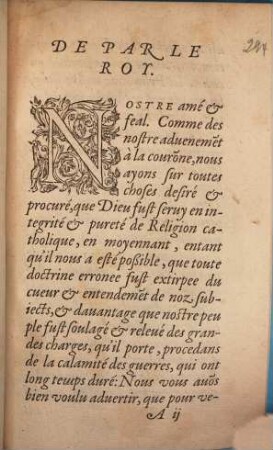 227
DE PAR LE
ROY.
NOSTRE amé &
feal. Comme des
nostre aduenemẽt
à la courõne, nous
ayons sur toutes
choses desiré &
procuré, que Dieu fust seruy en in-
tegrité & pureté de Religion ca-
tholique, en moyennant, entant
qu'il nous a esté poßible, que toute
doctrine erronee fust extirpee du
cueur & entendemẽt de noz sub-
iects, & dauantage que nostre peu
ple fust soulagé & releué des gran-
des charges, qu'il porte, procedans
de la calamité des guerres, qui ont
long temps duré: Nous vous auõs
bien voulu aduertir, que pour ve-
A ij